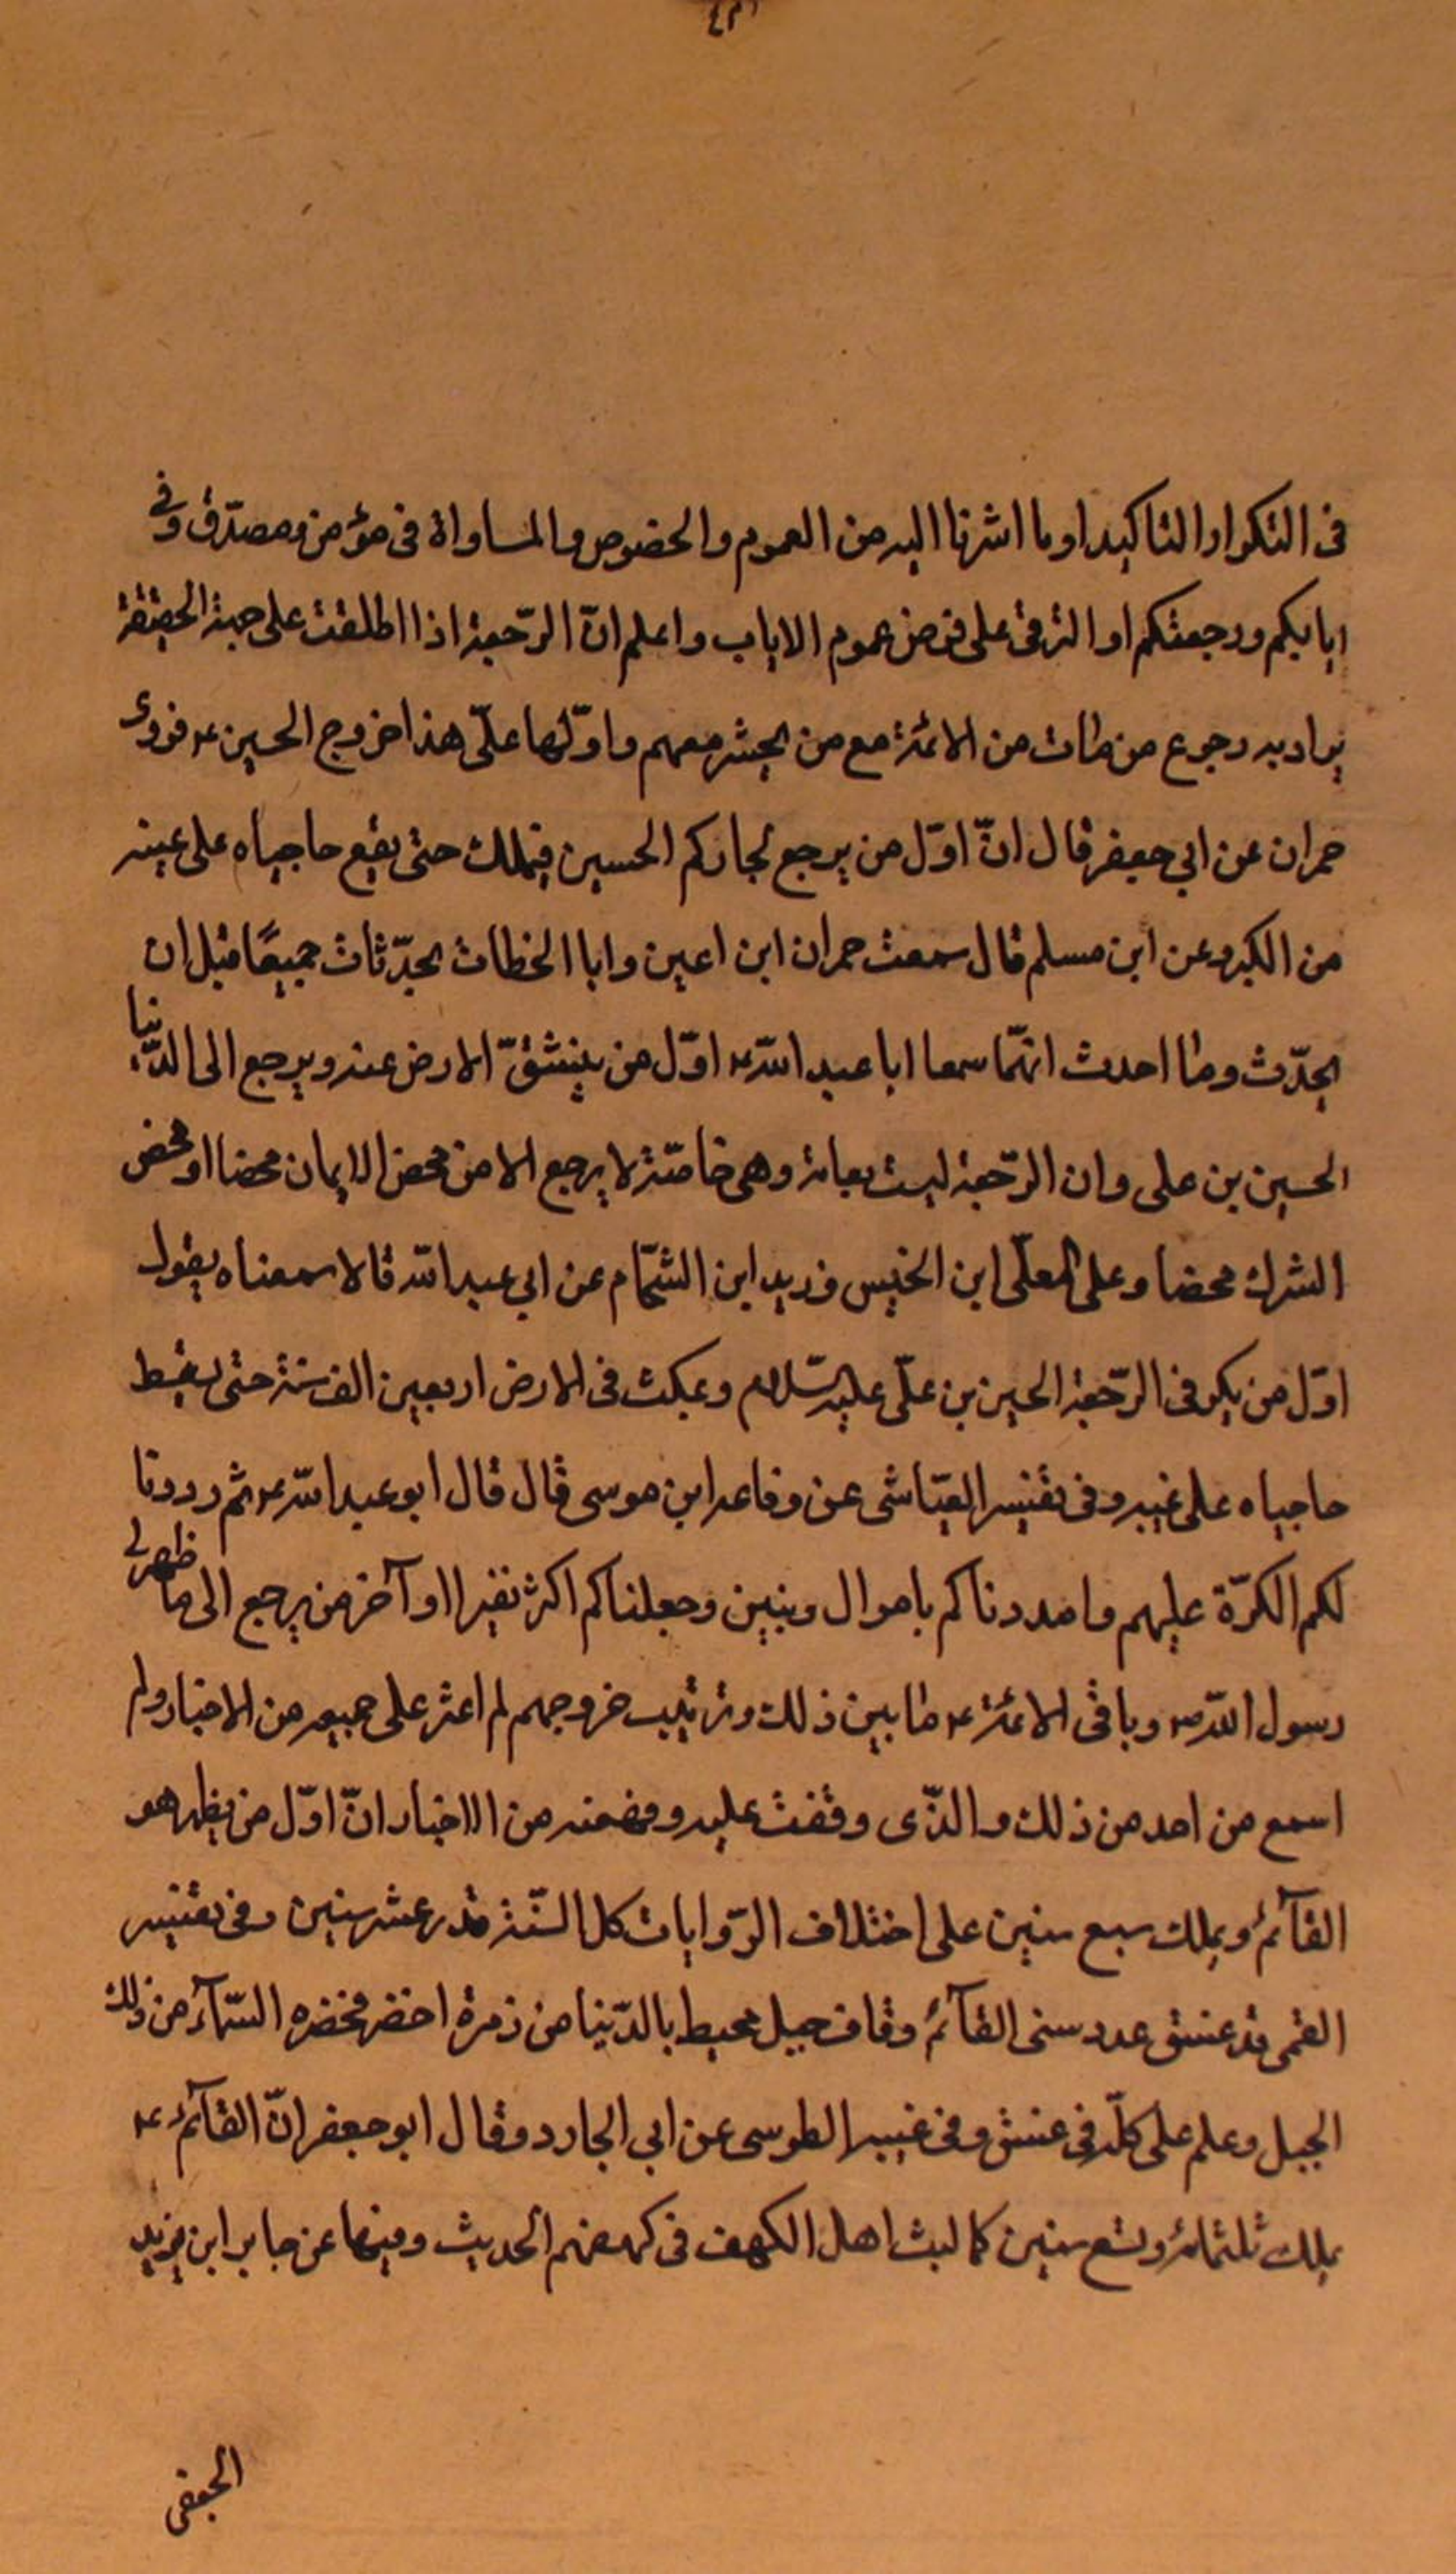 في التكرار والتاكيد او ما اشرنا اليه من العموم والخصوص والمساواة في مؤمن ومصدّق وفي
ايابكم ورجعتكم او الترقي على فرض عموم الاياب واعلم انّ الرّجعة اذا اطلقت على جهة الحقيقة
يراد به رجوع من مات من الائمّة مع من يحشر معهم واوّلها على هذا خروج الحسين ع فروى
حمران عن ابي جعفر قال انّ اوّل من يرجع لجاركم الحسين فيملك حتى يقع حاجباه على عينه
من الكبر وعن ابن مسلم قال سمعت حمران ابن اعين وابا الخطاب يحدّثان جميعًا قبل ان
يحدّث وما احدث انهّما سمعا ابا عبد اللّه ع اوّل من ينشقّ الارض عنه ويرجع الى الدّنيا
الحسين بن على وان الرّجعة ليست بعامة وهى خاصّة لا يرجع الا من محض الايمان محضا او محض
الشرك محضا وعلى المعلّى ابن الخنيس وزيد ابن الشحّام عن ابي عبد اللّه قالا سمعناه يقول
اوّل من يكر في الرّجعة الحسين بن علّي عليه السّلام ويمكث في الارض اربعين الف سنة حتى يسقط
حاجباه على عينيه وفي تفسير العيّاشى عن رفاعه ابن موسى قال قال ابو عبد اللّه ع ثم رددنا
لكم الكرّة عليهم وامددناكم باموال وبنين وجعلناكم اكثر نفيرا او آخر من يرجع الى ما ظهر لي
رسول اللّه ص وباقي الائمّة ع ما بين ذلك وترتيب خروجهم لم اعثر على جميعه من الاخبار ولم
اسمع من احد من ذلك والذّى وقفت عليه وفهمته من الاخبار انّ اوّل من يظهر هو
القآئم ويملك سبع سنين على اختلاف الرّوايات كل السّنة قدر عشر سنين وفي تفسير
القمى عسق عدد سنى القآئم وقاف جبل محيط بالدّنيا من زمرة اخضر فخضره السّمآء من ذلك
الجبل وعلم على كلّه في عسق وفي غيبة الطوسى عن ابي الجارود وقال ابو جعفر انّ القآئم ع
يملك ثلثمائة وتسع سنين كما لبث اهل الكهف في كهفهم الحديث وفيها عن جابر ابن يزيد
الجعفى